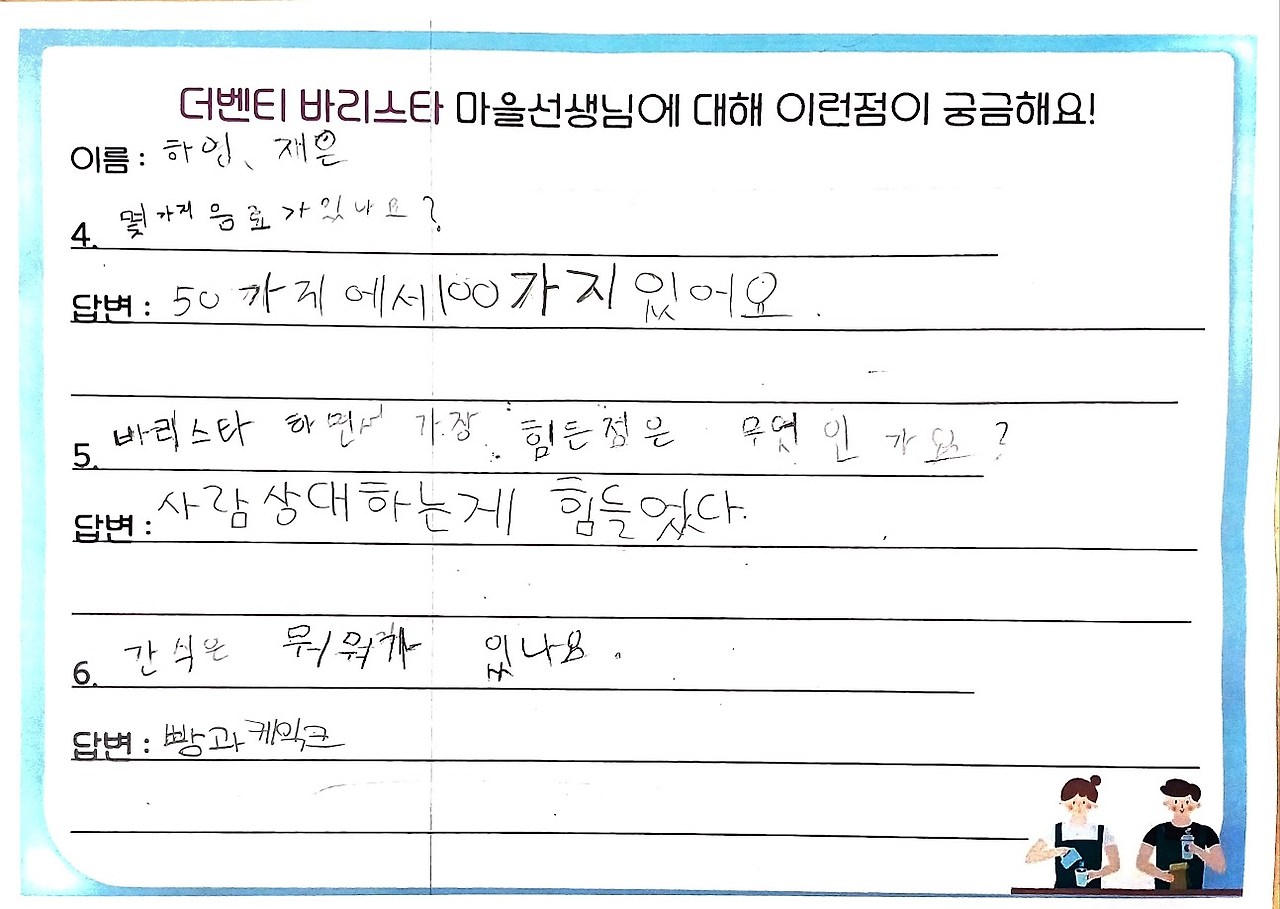 더벤티 바리스타 마을선생님에 대해 이런점이 궁금해요!
이름 : 하임、재은
4. 몇가지 음료가있나요?
답변 : 50가지에서100가지있어요.
5. 바리스타 하면서 가장 힘든점은 무엇인가요?
답변 : 사람상대하는게 힘들었다.
6. 간식은 뭐뭐가 있나요.
답변 : 빵과케익크